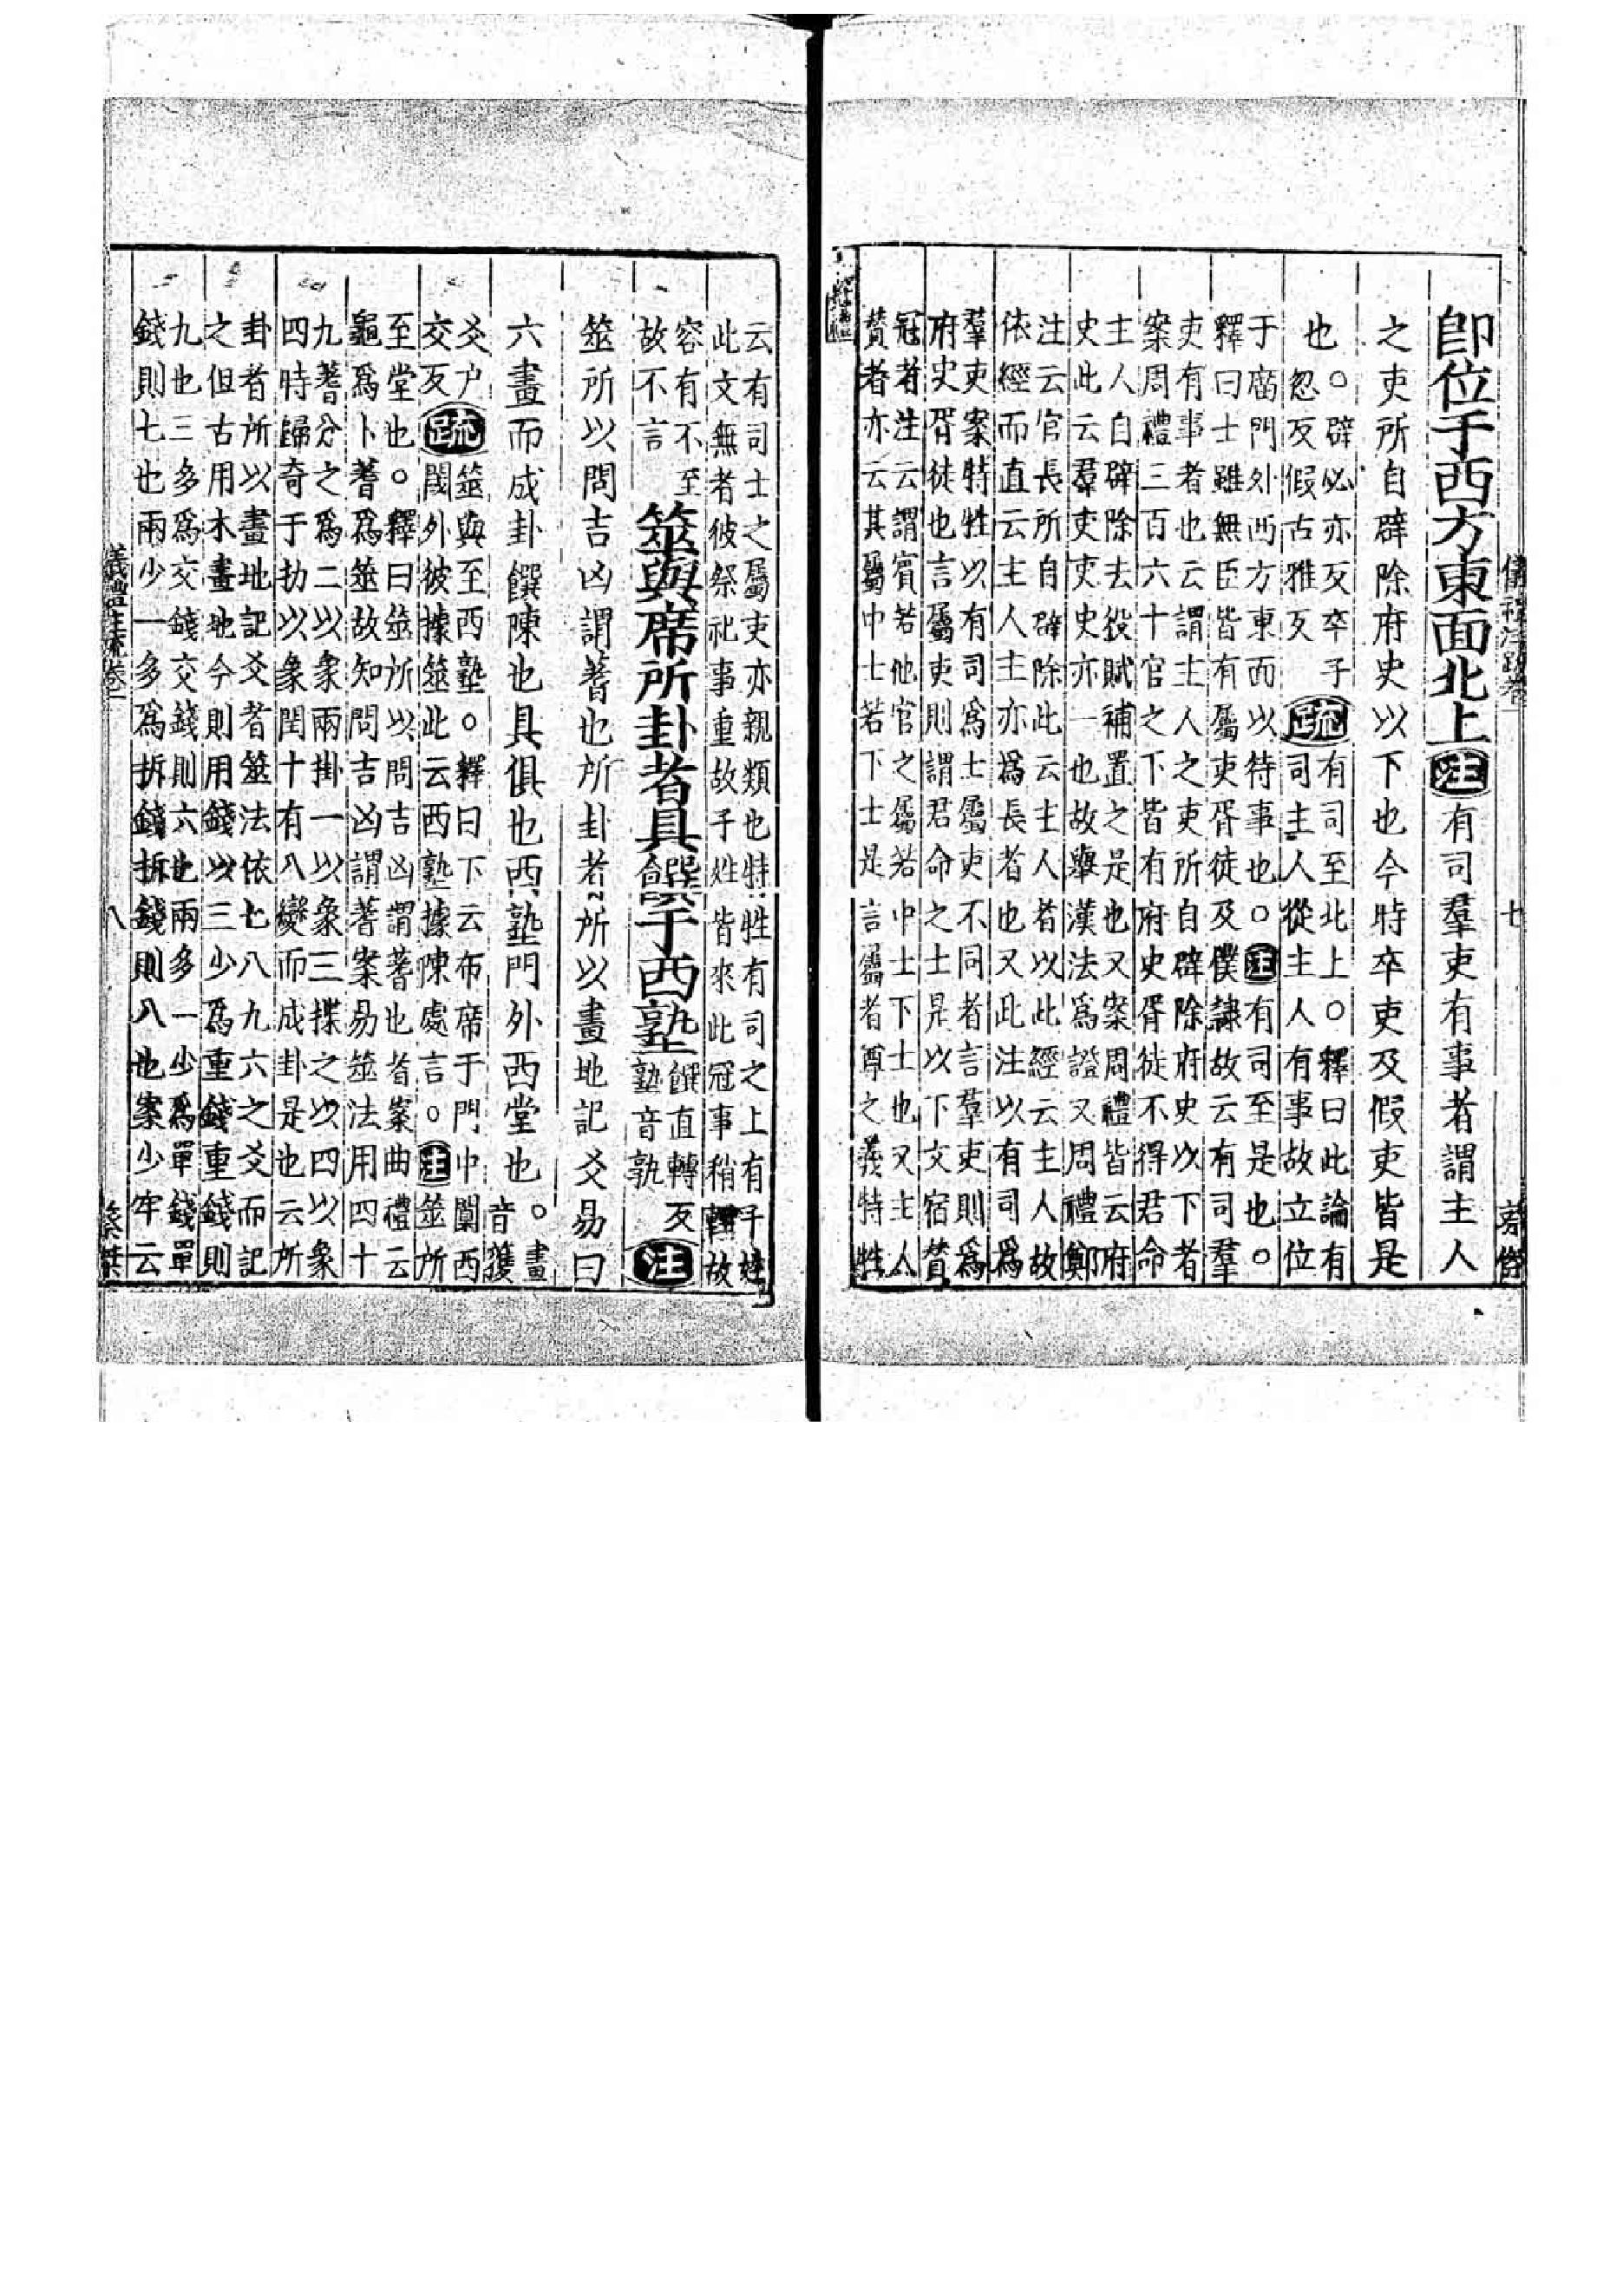 儀禮注疏卷一
七
即位于西方東面北上注有司羣吏有事者謂主人
之吏所自辟除府史以下也今時卒吏及假吏皆是
也○辟必亦反卒子
忽反假古雅反疏
有司至北上○釋曰此論有
司主人從主人有事故立位
于廟門外西方東面以待事也○注有司至是也○
釋曰士雖無臣皆有屬吏胥徒及僕隸故云有司羣
吏有事者也云謂主人之吏所自辟除府史以下者
案周禮三百六十官之下皆有府史胥徒不得君命
主人自辟除去役賦補置之是也又案周禮皆云府
史此云羣吏吏史亦一也故舉漢法爲證又周禮鄭
注云官長所自辟除此云主人者以此經云主人故
依經而直云主人主亦爲長者也又此注以有司爲
羣吏案特牲以有司爲士屬吏不同者言羣吏則爲
府史胥徒也言屬吏則謂君命之士是以下文宿贊
冠者注云謂賓若他官之屬若中士下士也又主人
贊者亦云其屬中士若下士是言屬者尊之義特牲
云有司士之屬吏亦親類也特牲有司之上有子姓
此文無者彼祭祀事重故子姓皆來此冠事稍輕故
容有不至
故不言
筮與席所卦者具饌于西塾
饌直轉反
塾音孰
注
筮所以問吉凶謂蓍也所卦者所以畫地記爻易曰
六畫而成卦饌陳也具俱也西塾門外西堂也
○畫
音獲
爻户
交反
疏
筮與至西塾○釋曰下云布席于門中闑西
閾外彼據筮此云西塾據陳處言○注筮所
至堂也○釋曰筮所以問吉凶謂蓍也者案曲禮云
龜爲卜蓍爲筮故知問吉凶謂蓍案易筮法用四十
九蓍分之爲二以象兩掛一以象三揲之以四以象
四時歸奇于扐以象閏十有八變而成卦是也云所
卦者所以畫地記爻者筮法依七八九六之爻而記
之但古用木畫地今則用錢以三少爲重錢重錢則
九也三多爲交錢交錢則六也兩多一少爲單錢單
錢則七也兩少一多爲拆錢拆錢則八也案少牢云
儀禮注疏卷一
八